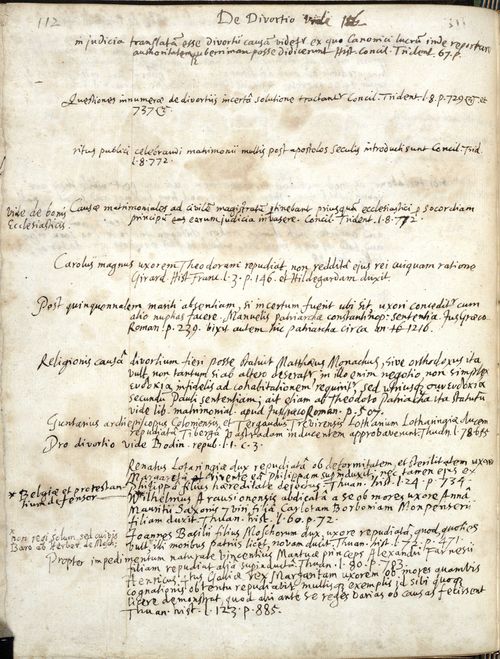 112 De Divortio vide 116 111
in judicia translatā esse divortii causā videtr ex quo Canonici lucrū inde reportari
authoritatemq uberrimam posse didicerunt Hist. Concil. Trident. 67. p.
Questiones innumeræ de divortiis incertā solutione tractantr Concil. Trident. l. 8. p. 729 et
737
ritus publici celebrandi matrimonii multis post apostolos seculis introducti sunt Concil. Trid.
l. 8. 772.
vide de bonis
Ecclesiasticis.
Causæ matrimoniales ad civilē magistratū ptinebant priusquā ecclesiastici p socordiam
principū eas earum judicia invasere. Concil. Trident. l. 8. 772.
Carolus magnus uxorem Theodorani repudiat, non redditâ ejus rei cuiquam ratione
Girard Hist. Franc. l. 3. p. 146. et Hildegardam duxit.
Post quinquennalem mariti absentium, si incertum fuerit ubi sit, uxori conceditr cum
alio nuptias facere. Manuelis patriarchæ constantinop: sententia. Jus Græco
Roman! p. 239. vixit autem hic patriarcha circa 1216.
Religionis causâ divortium fieri posse statuit Matthæus Monachus, sive orthodoxus ita
vult, non tantum si ab altero deseratr, in illo enim negotio non simplex
infidelis ad cohabitationem requiritr, sed utriusq
secundū Pauli sententiam; ait etiam ab Theodoto Patriarcha ita statutū
vide lib. matrimonial. apud jus græco Roman. p. 507.
Guntarius archiepiscopus Coloniensis, et Tergaudus Trevirensis Lotharium Lotharingiæ ducem
repudiatâ Tibergâ Valdradam inducentem approbaverunt Thuan. l. 78.
Pro divortio vide Bodin. repub. l. 1. c. 3.
Renatus Lotaringiæ dux repudiatâ ob deformitatem, et sterilitatem uxore
Margareta vivente eâ Philippam superduxit, nec tamen ejus ex
Philippâ filius hæreditate dejectus Thuan. hist. l. 24. p. 734.
* Belgiæ et protestan
tium defensor
Wilhelmus Arausionensis abdicatâ a se ob mores uxore Annâ
Mauritii Saxonis viri filiâ Carlotam Borboniam Monpenserii
filiam duxit. Thuan. hist. l. 60. p. 72.
* non regi solum, sed quibus
Baro ab Herber. de Moscov.
Joannes Basilii filius Moschorum dux, uxore repudiatâ, quod, quoties
vult, illi moribus patriis licet, novam ducit. Thuan. hist. l. 72. p. 471.
Propter impedimentum naturale Vincentius Mantuæ princeps Alexandri Farnesii
filiam repudiat, aliâ superinductâ Thuan. l. 80. p. 783.
Henricus 4tus Galliæ rex Margaritam uxorem ob mores quamvis
cognationis obtentu repudiatis multisq exemplis id sibi quoq
licere demonstrat quod alii ante se reges varias ob causas fecissent
Thuan. hist. l. 123. p. 885.